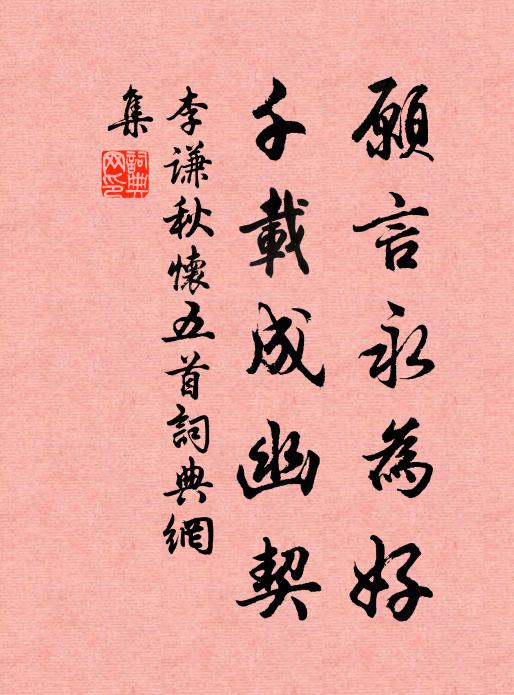 願言永為好
千載成幽契
李謙秋懷五首詞典網
集
詞典
网印